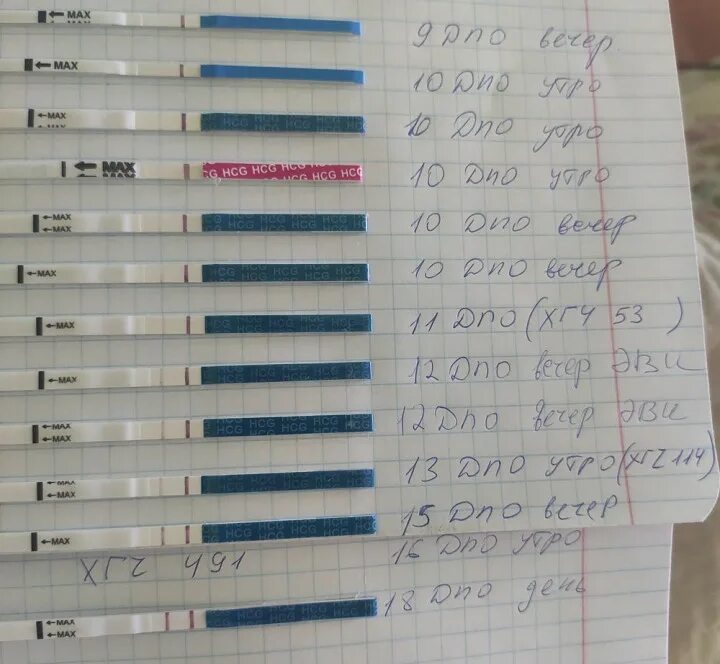 MAX 9 ДПО вечер.
MAX 10 ДПО утро
MAX HCG HCG HCG 10 ДПО утро
MAX MAX HCG HCG HCG HCG HCG HCG 10 ДПО утро
MAX MAX HCG HCG HCG 10 ДПО вечер
MAX HCG HCG HCG 10 ДПО вечер
MAX HCG HCG HCG 11 ДПО (ХГЧ 53 )
MAX HCG HCG HCG 12 ДПО вечер ЭВИ
MAX MAX HCG HCG HCG 12 ДПО вечер ЭВИ
MAX MAX HCG HCG 13 ДПО утро (ХГЧ 114)
MAX HCG HCG HCG 15 ДПО вечер
ХГЧ 491 16 ДПО утро
MAX MAX HCG HCG HCG 18 ДПО день